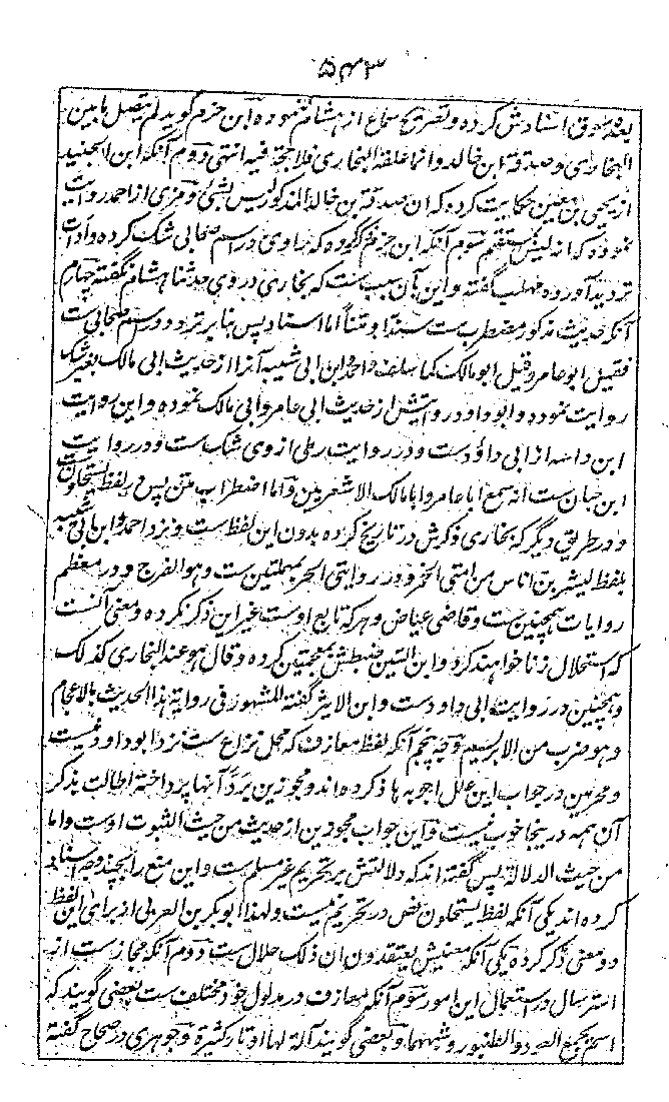 ۵۴۳
بعده سوق اسنادش کرده و تصریح سماع از هشام ننموده و ابن حزم گوید لم یتصل ما بین
البخاری و صدقة ابن خالد و انما علقه البخاری فلا حجة فیه انتهی دوم آنکه ابن الجنید
از یحیی بن معین حکایت کرده که ان صدقة بن خالد المذکور لیس بشئ و مزی از احمد روایت
نموده که انه لیس بمستقیم سوم آنکه ابن حزم گوید که راوی در اسم صحابی شک کرده و ادات
تردید آورده مهلب گفته و این بآن سبب ست که بخاری در وی حدثنا هشام نگفته چهارم
آنکه حدیث مذکور مضطرب ست سنداً و متناً اما اسناد پس بنا بر تردد در اسم صحابی ست
فقیل ابو عامر و قیل ابو مالک کما سلف و احمد و ابن ابی شیبه آنرا از حدیث ابی مالک بغیر شک
روایت نموده و ابو داود در روایتش از حدیث ابی عامر و ابی مالک نموده و این روایت
ابن داسه از ابی داؤد ست و در روایت رملی از وی شک ست و در روایت
ابن حبان ست انه سمع ابا عامر و ابا مالک الاشعریین و اما اضطراب متن پس در لفظ یستحلون
و در طریق دیگر که بخاری ذکرش در تاریخ کرده بدون این لفظ ست و نزد احمد و ابن ابی شیبه
بلفظ لیشربن اناس من امتی الخمر و در روایتی الحر بمهملتین ست و هو الفرج و در معظم
روایات همچنین ست و قاضی عیاض و هر که تابع اوست غیر این ذکر نکرده و معنی آنست
که استحلال زنا خواهند کرد و ابن التین ضبطش بمعجمتین کرده و قال هو عند البخاری کذلک
و همچنین در روایت ابی داود ست و ابن الاثیر گفته المشهور فی روایة هذا الحدیث بالاعجام
و هو ضرب من الابریسم وجه پنجم آنکه لفظ معازف که محل نزاع ست نزد ابو داود نیست
و محرمین در جواب این علل اجوبه ها ذکر کرده اند و مجوزین برد آنها پرداخته اطالت بذکر
آن همه در ینجا خوب نیست و این جواب مجوزین از حدیث من حیث الثبوت اوست و اما
من حیث الدلالة پس گفته اند که دلالتش بر تحریم غیر مسلم ست و این منع را بچند وجه اسناد
کرده اند یکی آنکه لفظ یستحلون نص در تحریم نیست و لهذا ابو بکر بن العربی از برای این لفظ
دو معنی ذکر کرده یکی آنکه معنیش یعتقدون ان ذلک حلال ست دوم آنکه مجاز ست از
استرسال در استعمال این امور سوم آنکه معازف در مدلول خود مختلف ست بعضی گویند که
اسم یجمع العود و الطنبور و شبههما و بعضی گویند آلة لها اوتار کثیرة و جوهری در صحاح گفته